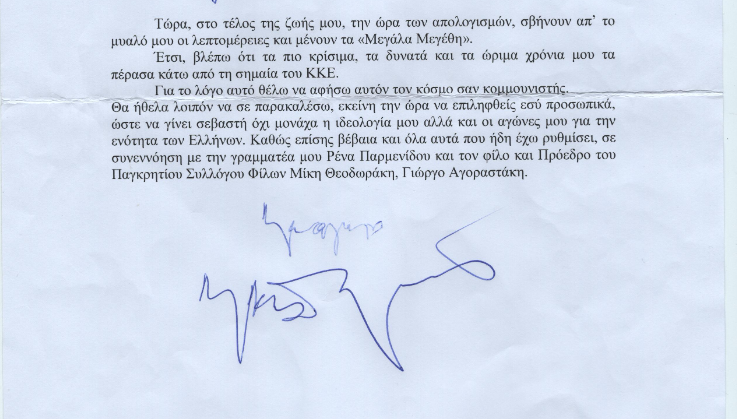 Τώρα, στο τέλος της ζωής μου, την ώρα των απολογισμών, σβήνουν απ’ το
μυαλό μου οι λεπτομέρειες και μένουν τα «Μεγάλα Μεγέθη».
Έτσι, βλέπω ότι τα πιο κρίσιμα, τα δυνατά και τα ώριμα χρόνια μου τα
πέρασα κάτω από τη σημαία του ΚΚΕ.
Για το λόγο αυτό θέλω να αφήσω αυτόν τον κόσμο σαν κομμουνιστής.
Θα ήθελα λοιπόν να σε παρακαλέσω, εκείνη την ώρα να επιληφθείς εσύ προσωπικά,
ώστε να γίνει σεβαστή όχι μονάχα η ιδεολογία μου αλλά και οι αγώνες μου για την
ενότητα των Ελλήνων. Καθώς επίσης βέβαια και όλα αυτά που ήδη έχω ρυθμίσει, σε
συνεννόηση με την γραμματέα μου Ρένα Παρμενίδου και τον φίλο και Πρόεδρο του
Παγκρητίου Συλλόγου Φίλων Μίκη Θεοδωράκη, Γιώργο Αγοραστάκη.